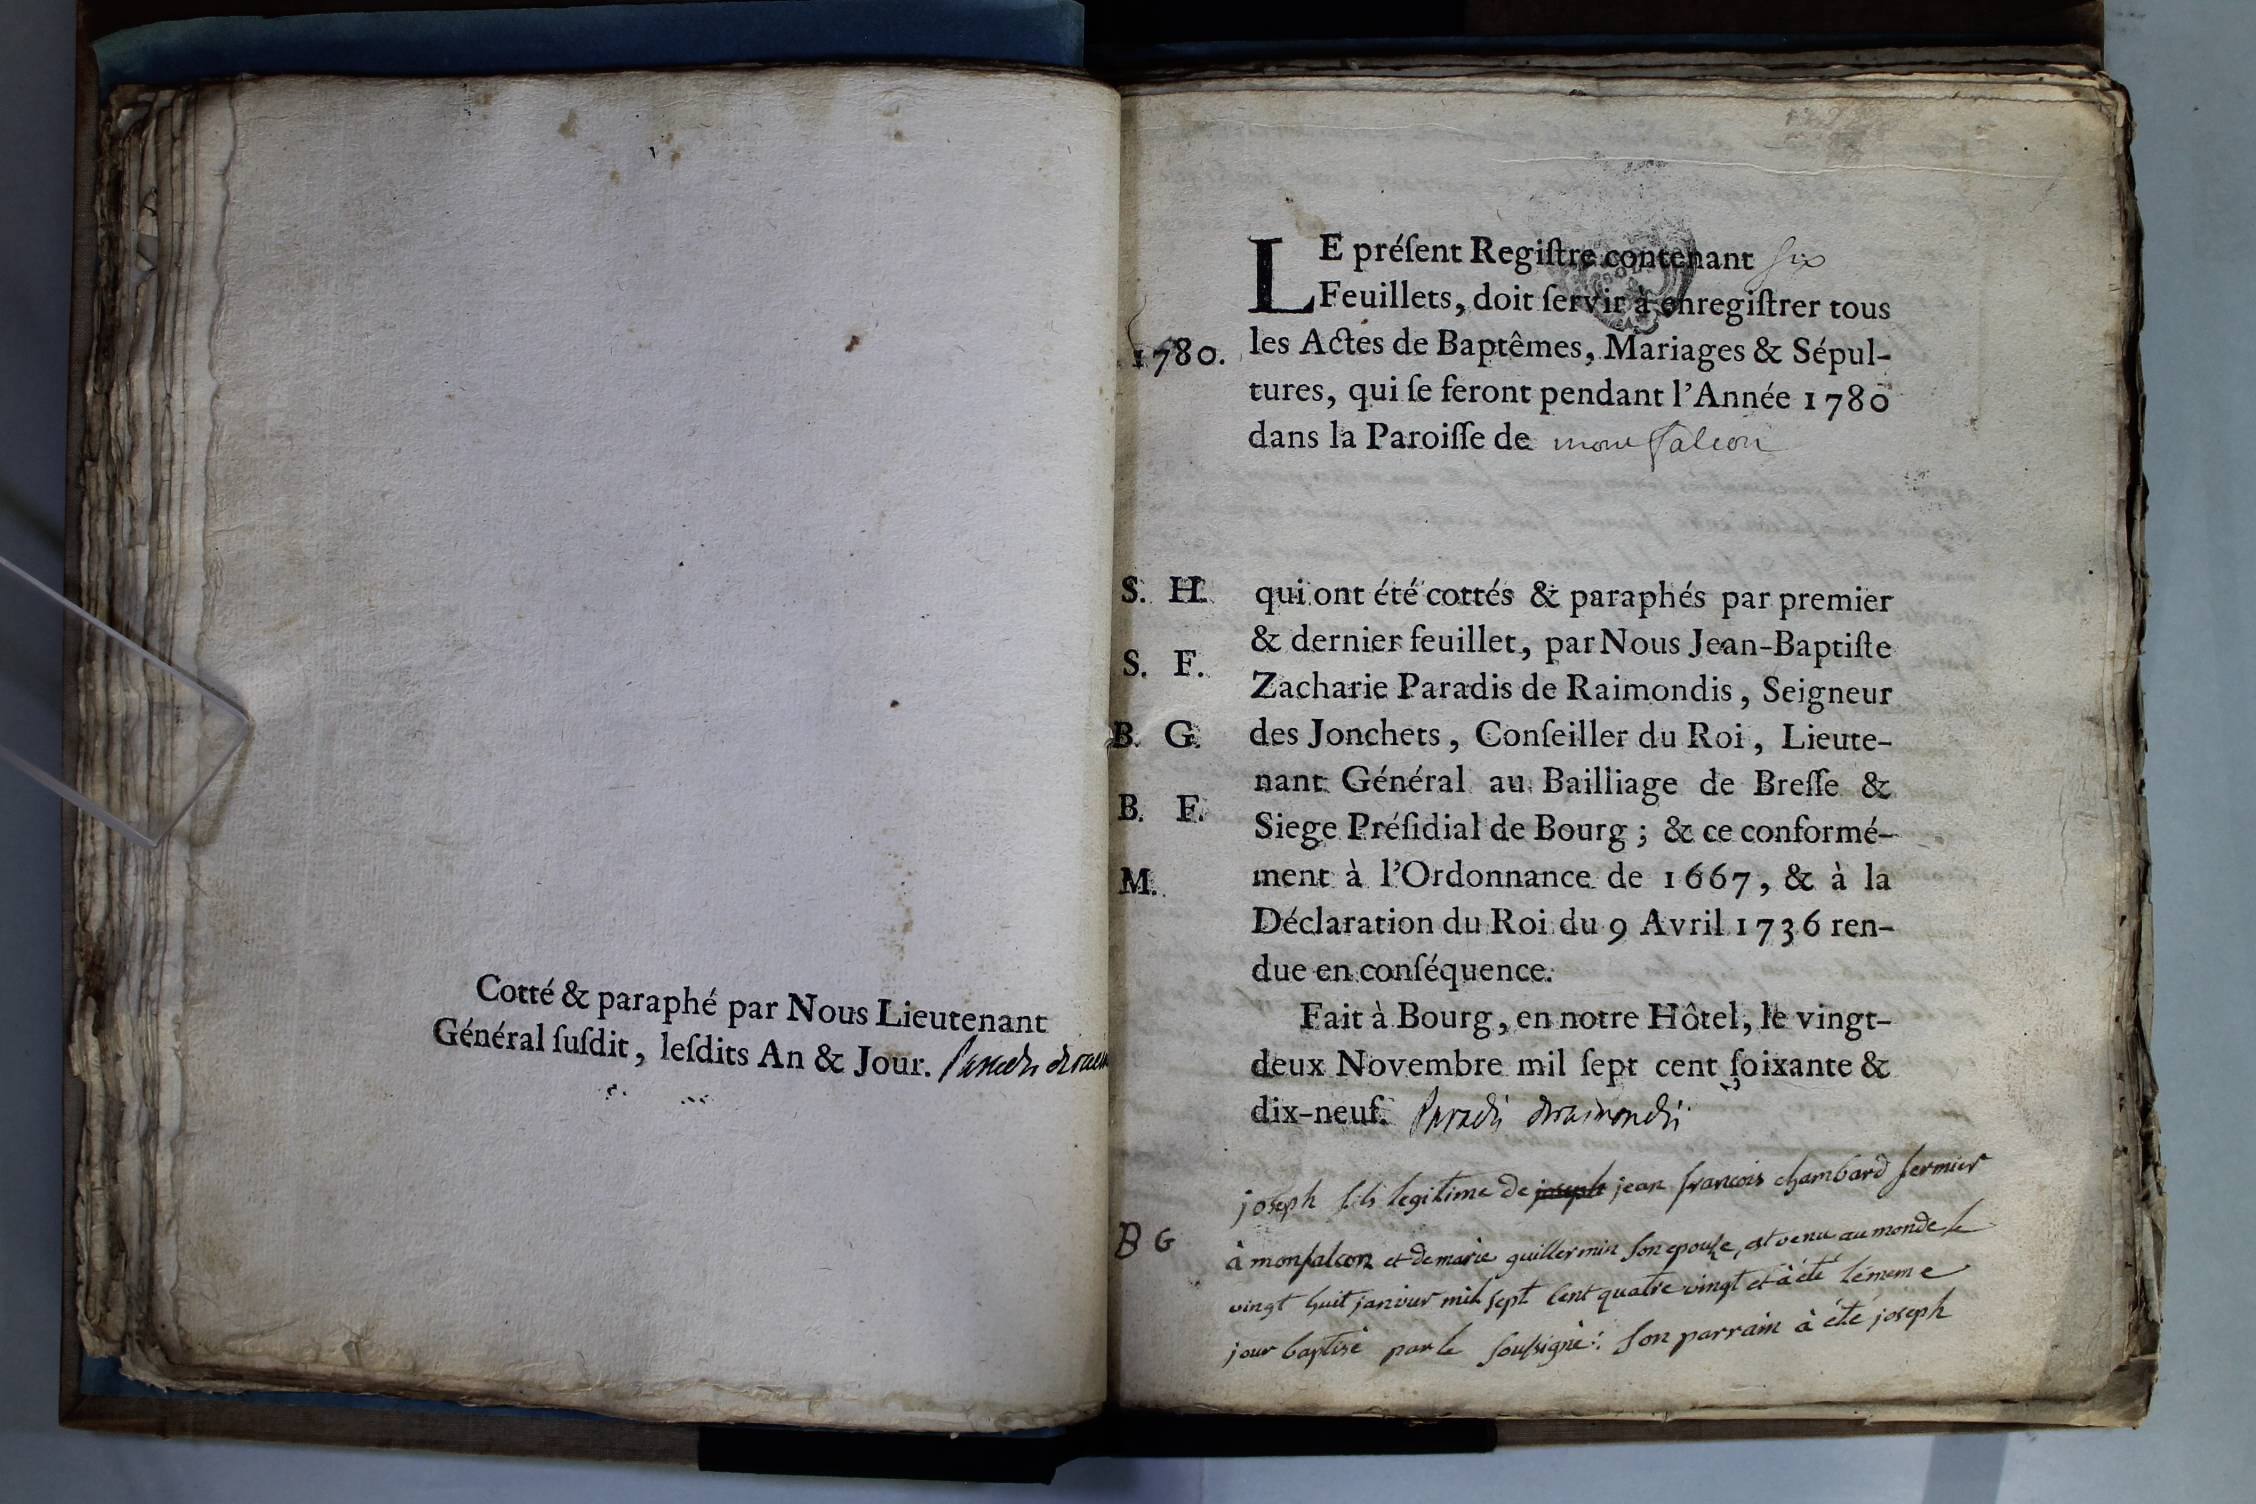 Cotté & paraphé par Nous Lieutenant
Général ſuſdit, leſdits An & Jour. Paradis deraim
LE préſent Regiſtre contenant ſix
Feuillets, doit ſervir à enregiſtrer tous
1780. les Actes de Baptêmes, Mariages & Sépul-
tures, qui ſe feront pendant l'Année 1780
dans la Paroiſſe de monfalcon
S. H. qui ont été cottés & paraphés par premier
& dernier feuillet, par Nous Jean-Baptiſte
S. F. Zacharie Paradis de Raimondis, Seigneur
B. G. des Jonchets, Conſeiller du Roi, Lieute-
nant Général au Bailliage de Breſſe &
B. F. Siege Préſidial de Bourg; & ce conformé-
M. ment à l'Ordonnance de 1667, & à la
Déclaration du Roi du 9 Avril 1736 ren-
due en conſéquence.
Fait à Bourg, en notre Hôtel, le vingt-
deux Novembre mil ſept cent ſoixante &
dix-neuf. Paradis deraimondis
joseph fils legitime de joseph jean francois chambard fermier
B G à monfalcon et de marie guillermin son epouse, est venu au monde le
vingt huit janvier mil sept cent quatre vingt et à été le meme
jour baptisé par le soussigné: son parrain à été joseph